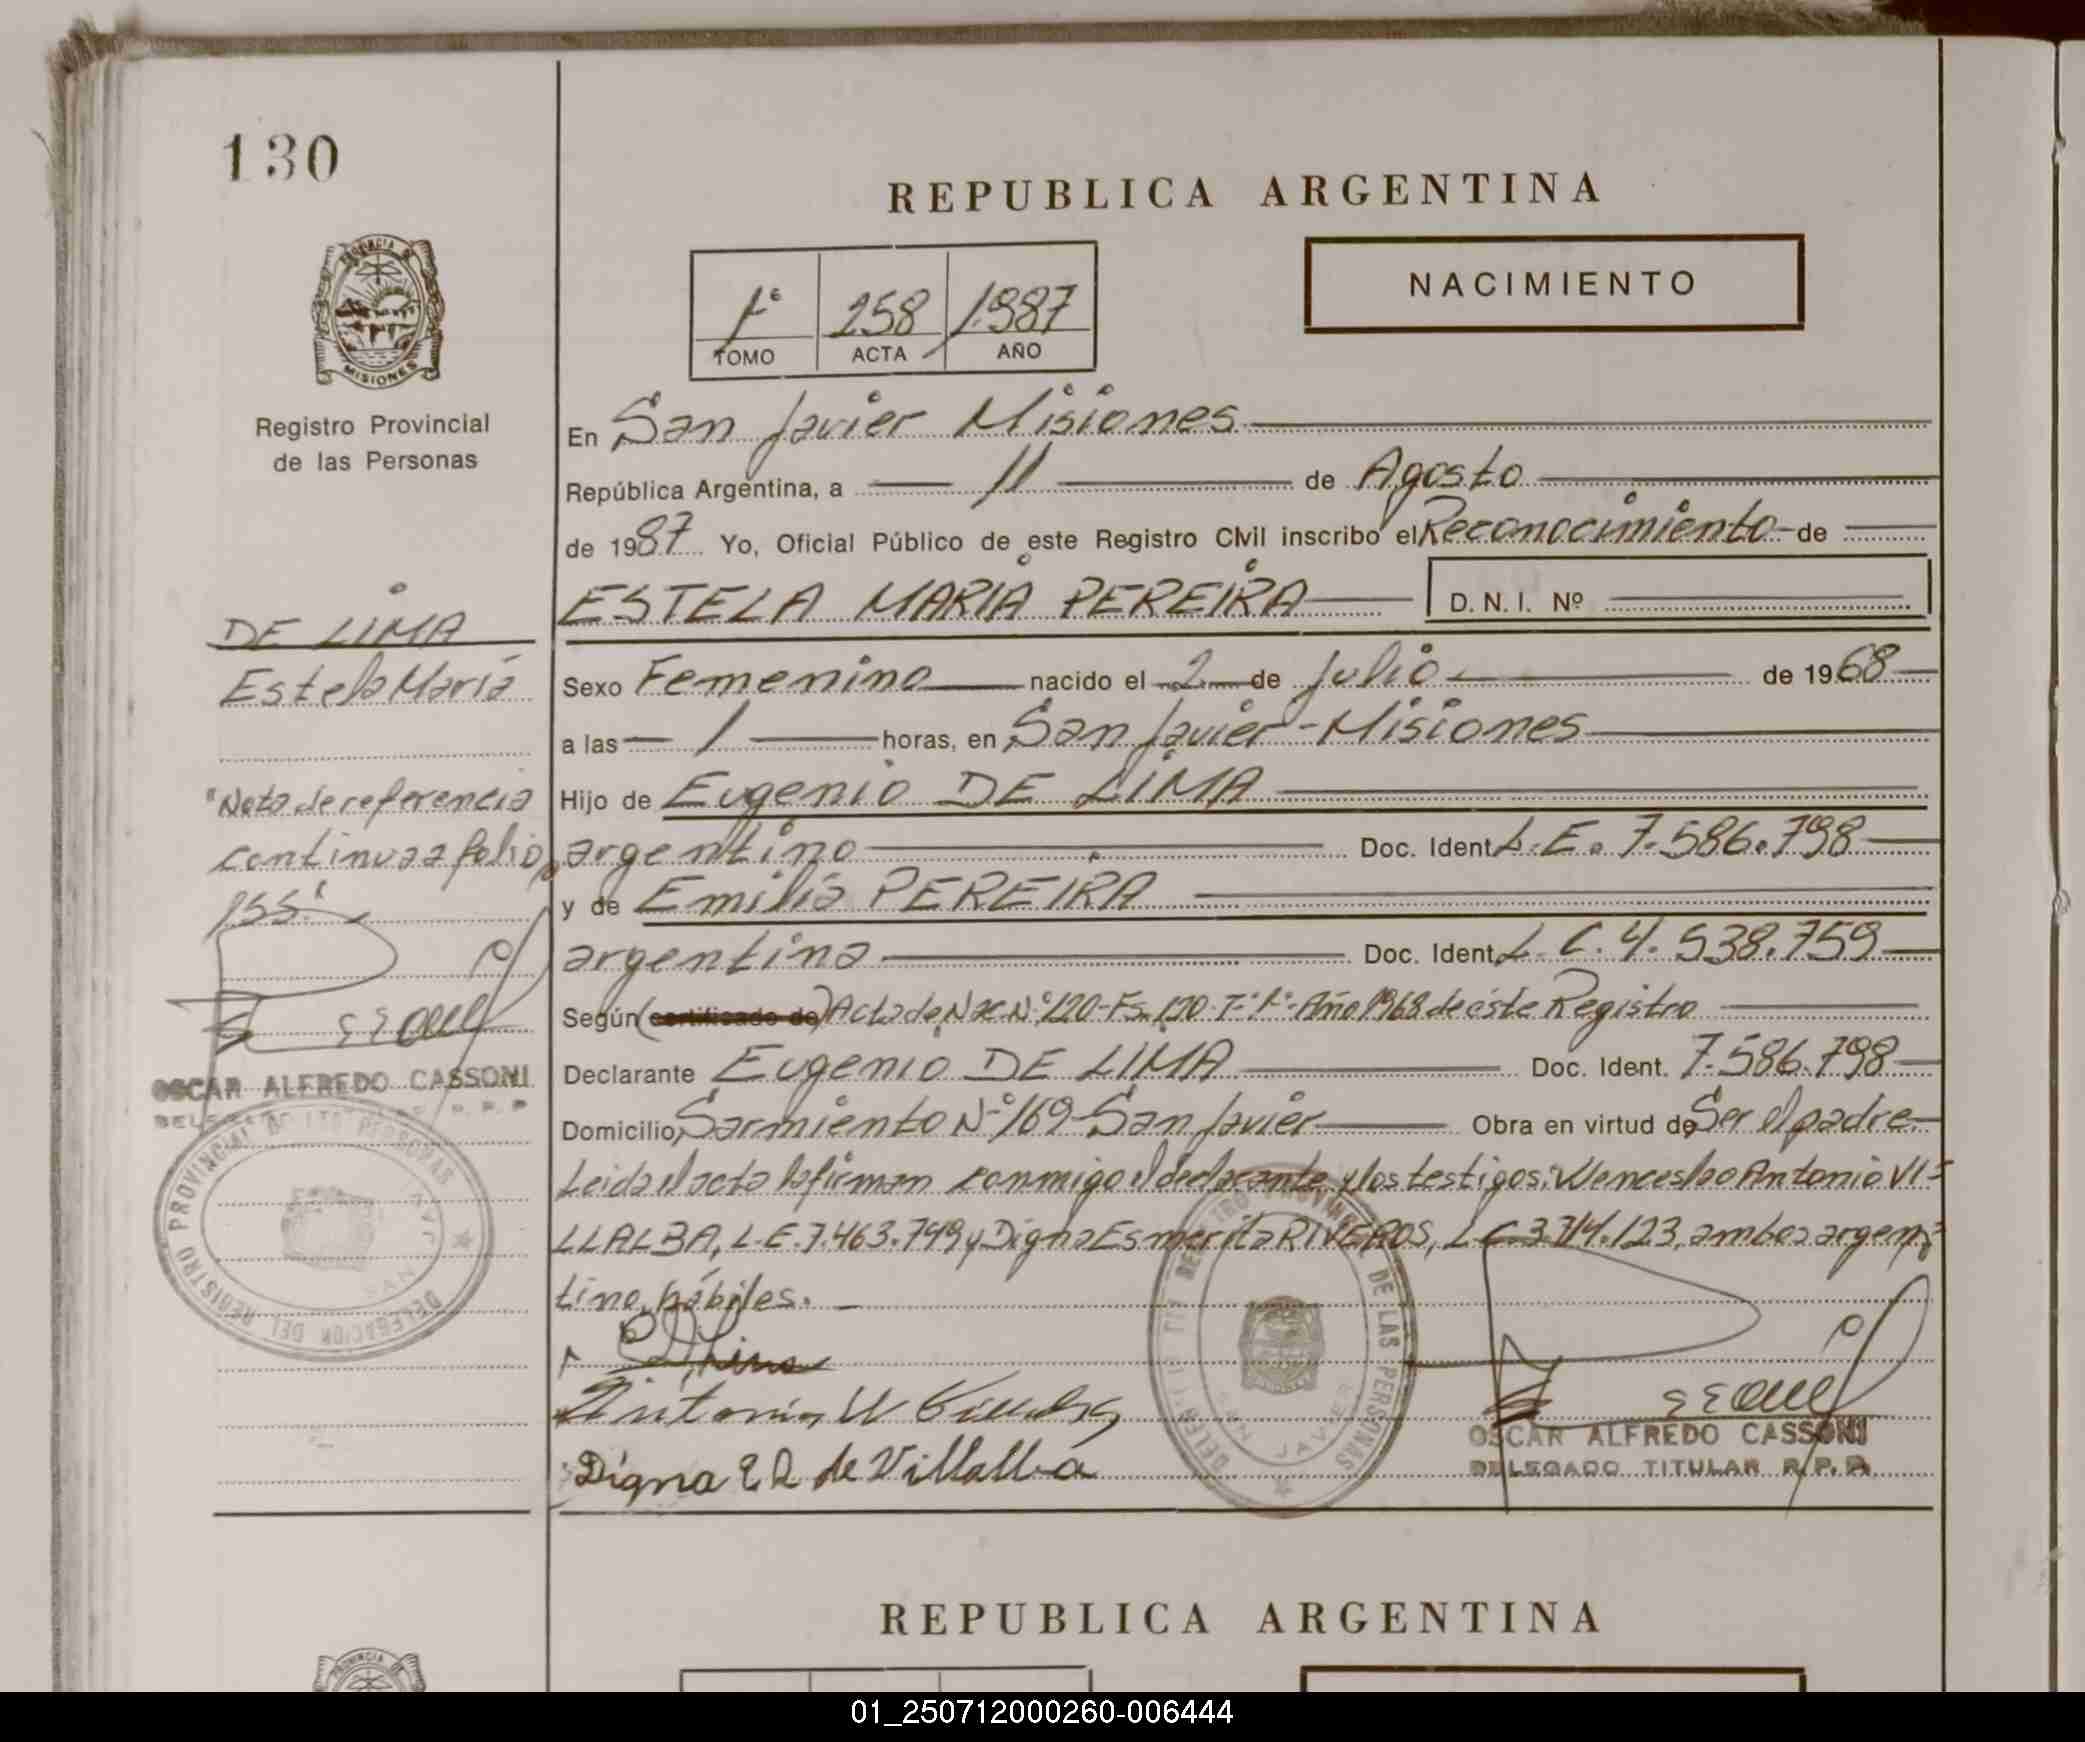 130
REPUBLICA ARGENTINA
NACIMIENTO
1º 258 1.987
TOMO ACTA AÑO
PROVINCIA DE
MISIONES
Registro Provincial
de las Personas
En San Javier Misiones
República Argentina, a 11 de Agosto
de 1987 Yo, Oficial Público de este Registro Civil inscribo el Reconocimiento de
ESTELA MARIA PEREIRA D.N.I. Nº
DE LIMA
Estela María
Sexo Femenino nacido el 2 de Julio de 1968
a las 1 horas, en San Javier - Misiones
Hijo de Eugenio DE LIMA
argentino Doc. Ident. L.E. 7.586.798
y de Emilia PEREIRA
argentina Doc. Ident. L.C. 4.538.759
Según (certificado de) Acta de Nac. Nº 120-Fs. 120-Tº 1º-Año 1968 de éste Registro
Declarante Eugenio DE LIMA Doc. Ident. 7.586.798
Domicilio Sarmiento Nº 169-San Javier Obra en virtud de Ser el padre.-
Leida el acta la firman conmigo el declarante y los testigos: Wenceslao Antonio VI-
LLALBA, L.E. 7.463.749 y Digna Esmerita RIVEROS, L.C. 3.714.123, ambos argen-
tino, hábiles. -
"Nota de referencia
continua a folio
155."
OSCAR ALFREDO CASSONI
DELEGACION DEL REGISTRO PROVINCIAL DE LAS PERSONAS
SAN JAVIER
Digna E R de Villalba
DE LAS PERSONAS
SAN JAVIER
OSCAR ALFREDO CASSONI
DELEGADO TITULAR R.P.P.
REPUBLICA ARGENTINA
PROVINCIA DE
01_250712000260-006444